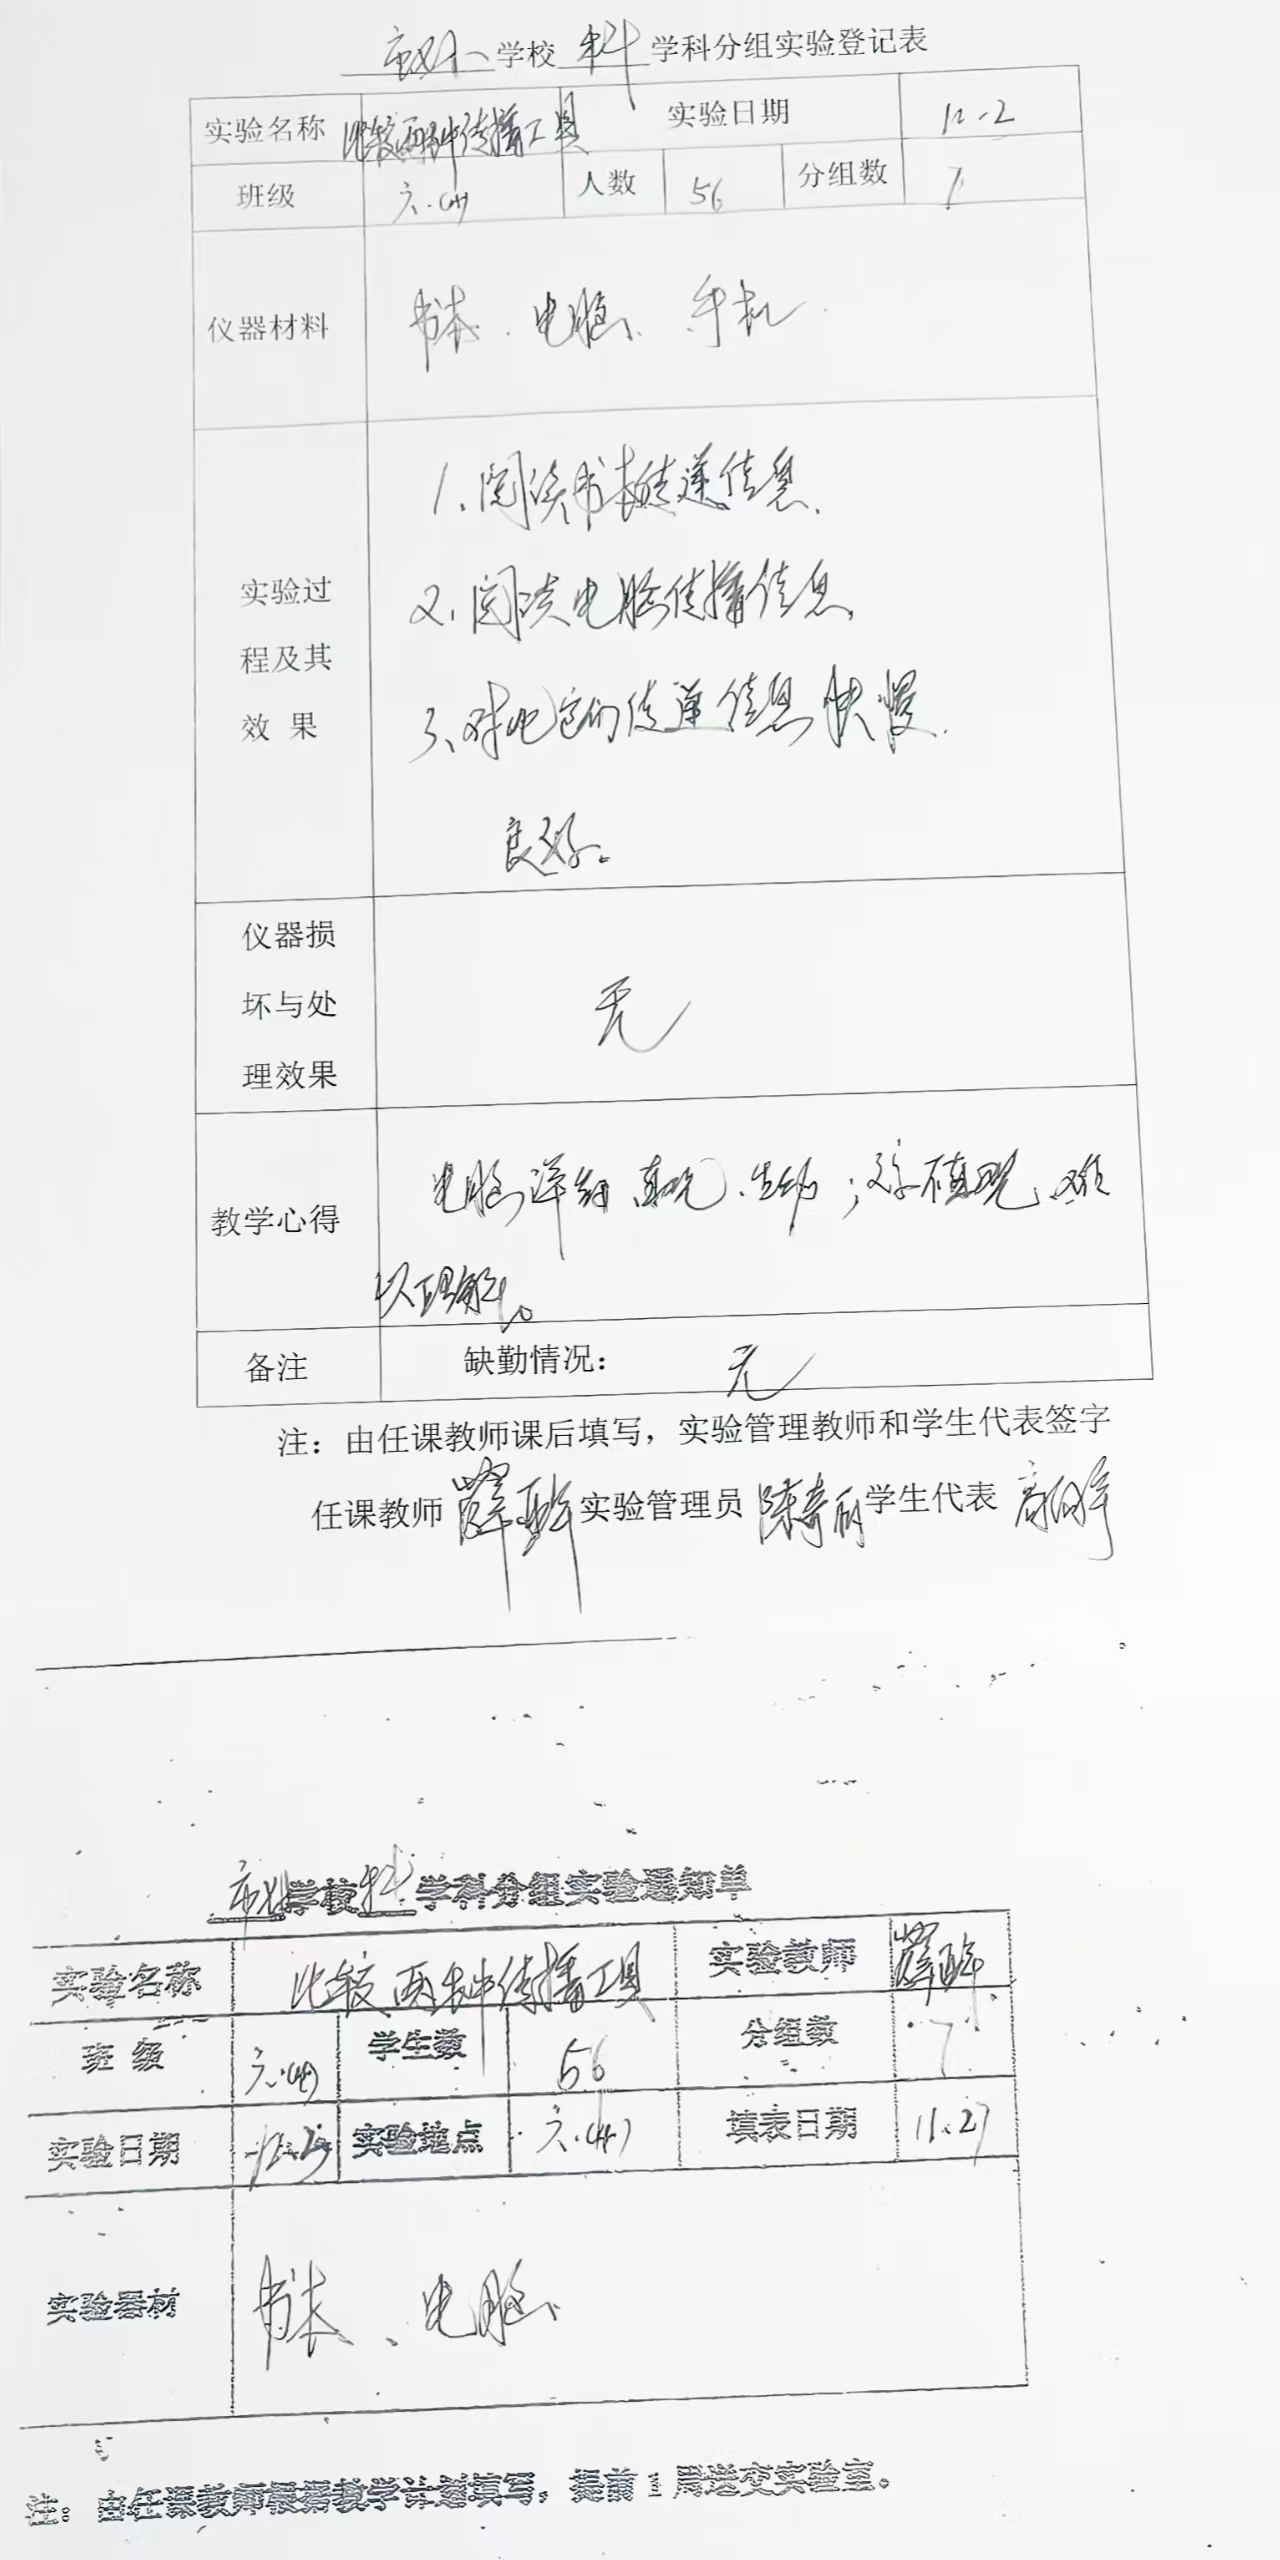 学校 科 学科分组实验登记表
实验名称 比较两种传播工具 实验日期 12.2
班级 六.(4) 人数 56 分组数 7
仪器材料 书本、电脑、手机
1、阅读书本传递信息、
2、阅读电脑传播信息、
实验过
程及其
效 果
3、对比它们传递信息快慢、
良好。
仪器损
坏与处
理效果
无
教学心得
电脑详细、直观、生动；文字不直观、难
以理解。
备注 缺勤情况： 无
注：由任课教师课后填写，实验管理教师和学生代表签字
任课教师 薛 实验管理员 陈奇丽 学生代表 高
学校 科 学科分组实验通知单
实验名称 比较两种传播工具 实验教师 薛
班 级 六.(4) 学生数 56 分组数 7
实验日期 实验地点 六.(4) 填表日期 11.27
实验器材 书本、电脑、
注：由任课教师根据教学计划填写，提前1周送交实验室。